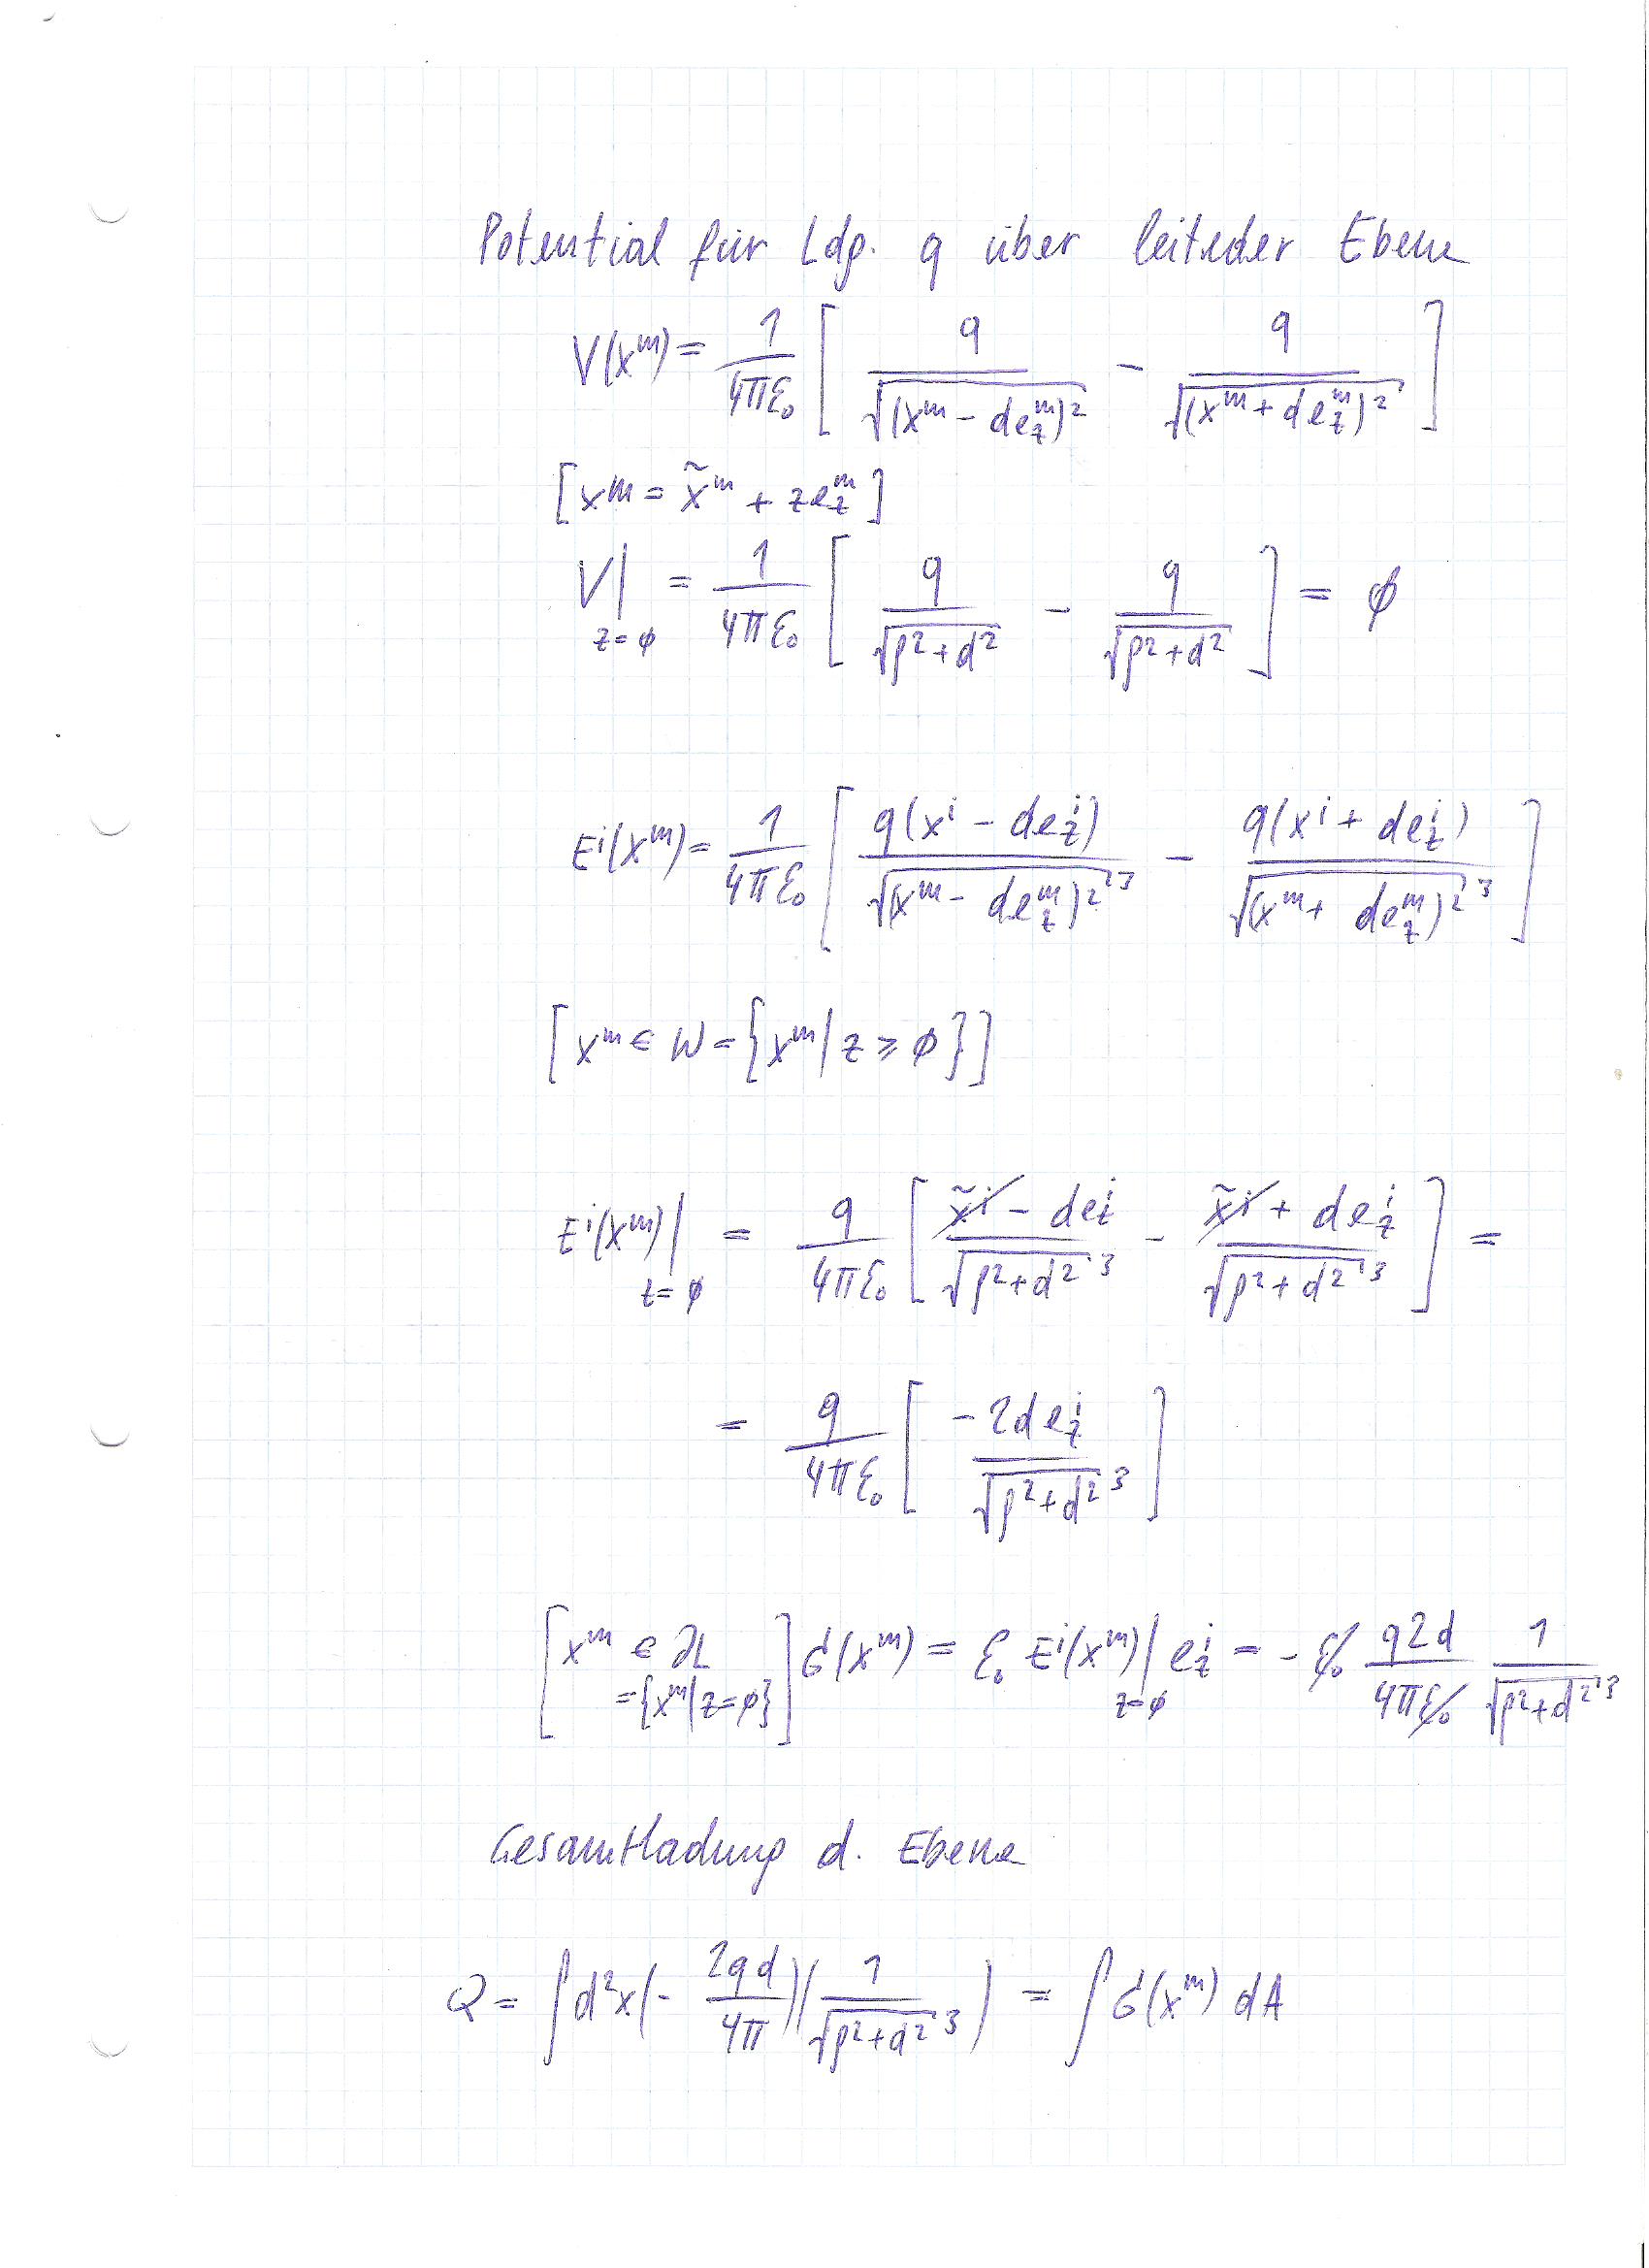 Potential für Ldg. q über leiteder Ebene
V(x^m) = 1/(4πε₀) [ q/√((x^m − de_z^m)²) − q/√((x^m + de_z^m)²) ]
[x^m = x̃^m + ze_z^m]
V|_{z=∅} = 1/(4πε₀) [ q/√(ρ²+d²) − q/√(ρ²+d²) ] = ∅
E^i(x^m) = 1/(4πε₀) [ q(x^i − de_z^i)/√((x^m − de_z^m)²)³ − q(x^i + de_z^i)/√((x^m + de_z^m)²)³ ]
[x^m ∈ W = {x^m | z ≥ ∅}]
E^i(x^m)|_{z=∅} = q/(4πε₀) [ (x̃^i − de_z^i)/√(ρ²+d²)³ − (x̃^i + de_z^i)/√(ρ²+d²)³ ] =
= q/(4πε₀) [ −2de_z^i/√(ρ²+d²)³ ]
[x^m ∈ ∂L = {x^m | z=∅}] σ(x^m) = ε₀ E^i(x^m)|_{z=∅} e_z^i = − ε₀ q2d/(4πε₀) 1/√(ρ²+d²)³
Gesamtladung d. Ebene
Q = ∫d²x(− 2qd/4π)(1/√(ρ²+d²)³) = ∫σ(x^m) dA